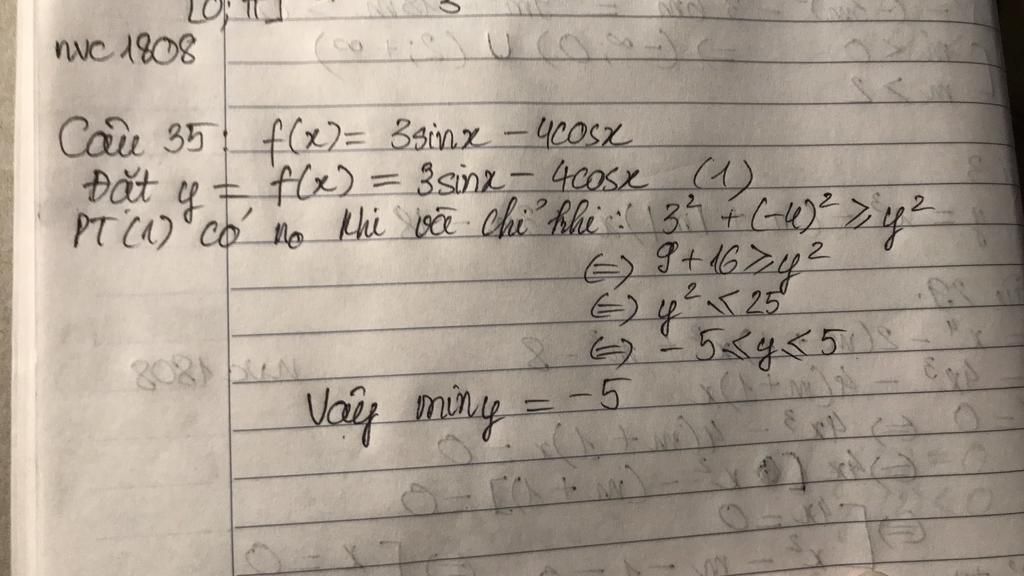 [0; π]
nvc 1808
Câu 35: f(x) = 3sinx - 4cosx
Đặt y = f(x) = 3sinx - 4cosx (1)
PT (1) có no khi và chỉ khi: 3² + (-4)² ≥ y²
⇔ 9 + 16 ≥ y²
⇔ y² ≤ 25
⇔ -5 ≤ y ≤ 5
Vậy min y = -5